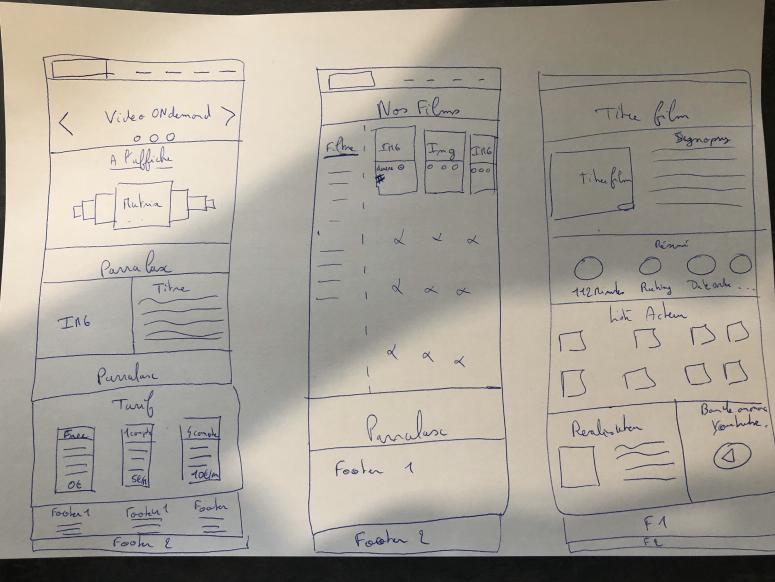 Video ONdemand
A l'affiche
Matrix
Parralaxe
IMG
Titre
Parralaxe
Tarif
Free
0€
1 compte
5€/m
4 compte
10€/m
Footer 1
Footer 1
Footer
Footer 2
Nos Films
Filtre
IMG
Img
IMG
Parralaxe
Footer 1
Footer 2
Titre film
Titre film
Résumé
112 Minutes
Ranking
Date sortie
...
Liste Acteur
Realisateur
Bande annonce
Youtube.
F1
F2